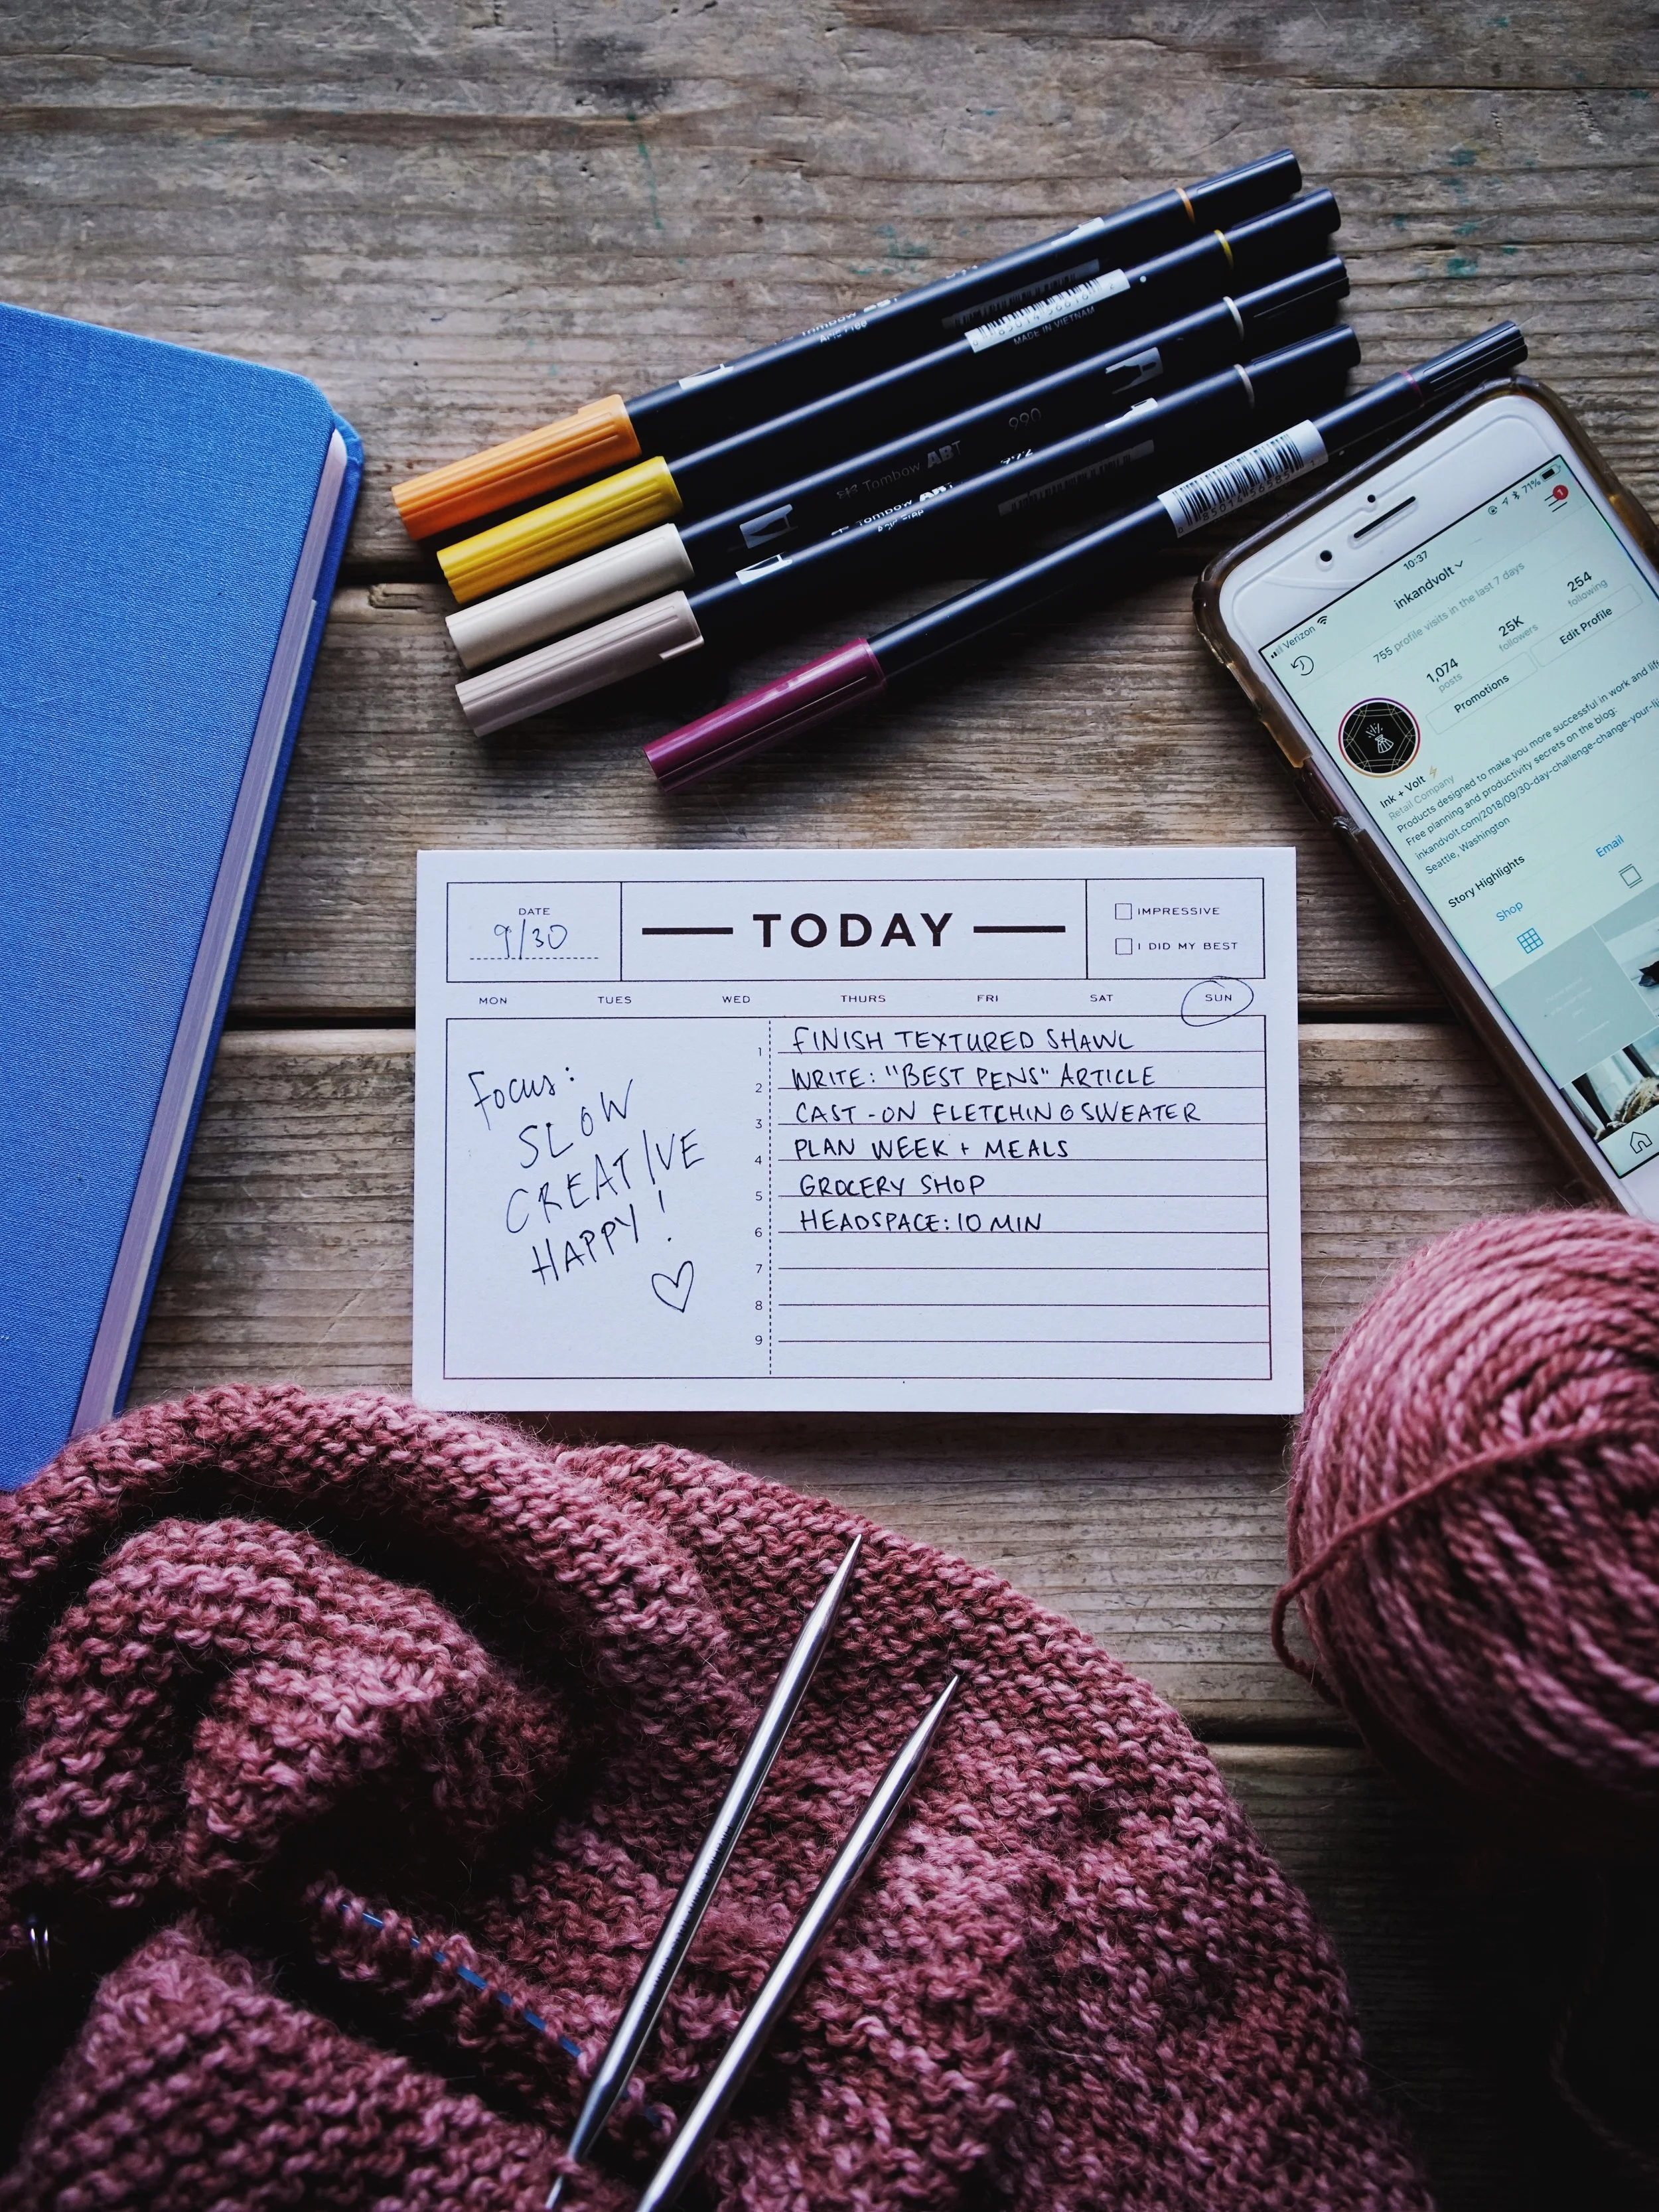 Tombow ABT
MADE IN VIETNAM
990
Tombow ABT
Tombow ABT
Verizon
10:37
71%
inkandvolt
1
755 profile visits in the last 7 days
1,074
posts
25K
followers
254
following
Promotions
Edit Profile
Ink + Volt
Retail Company
Products designed to make you more successful in work and
Free planning and productivity secrets on the blog:
inkandvolt.com/2018/09/30-day-challenge-change-your-
Seattle, Washington
Story Highlights
Shop
Email
DATE
9/30
TODAY
IMPRESSIVE
I DID MY BEST
MON TUES WED THURS FRI SAT SUN
Focus:
SLOW
CREATIVE
HAPPY!
1 FINISH TEXTURED SHAWL
2 WRITE: "BEST PENS" ARTICLE
3 CAST-ON FLETCHING SWEATER
4 PLAN WEEK + MEALS
5 GROCERY SHOP
6 HEADSPACE: 10 MIN
7
8
9